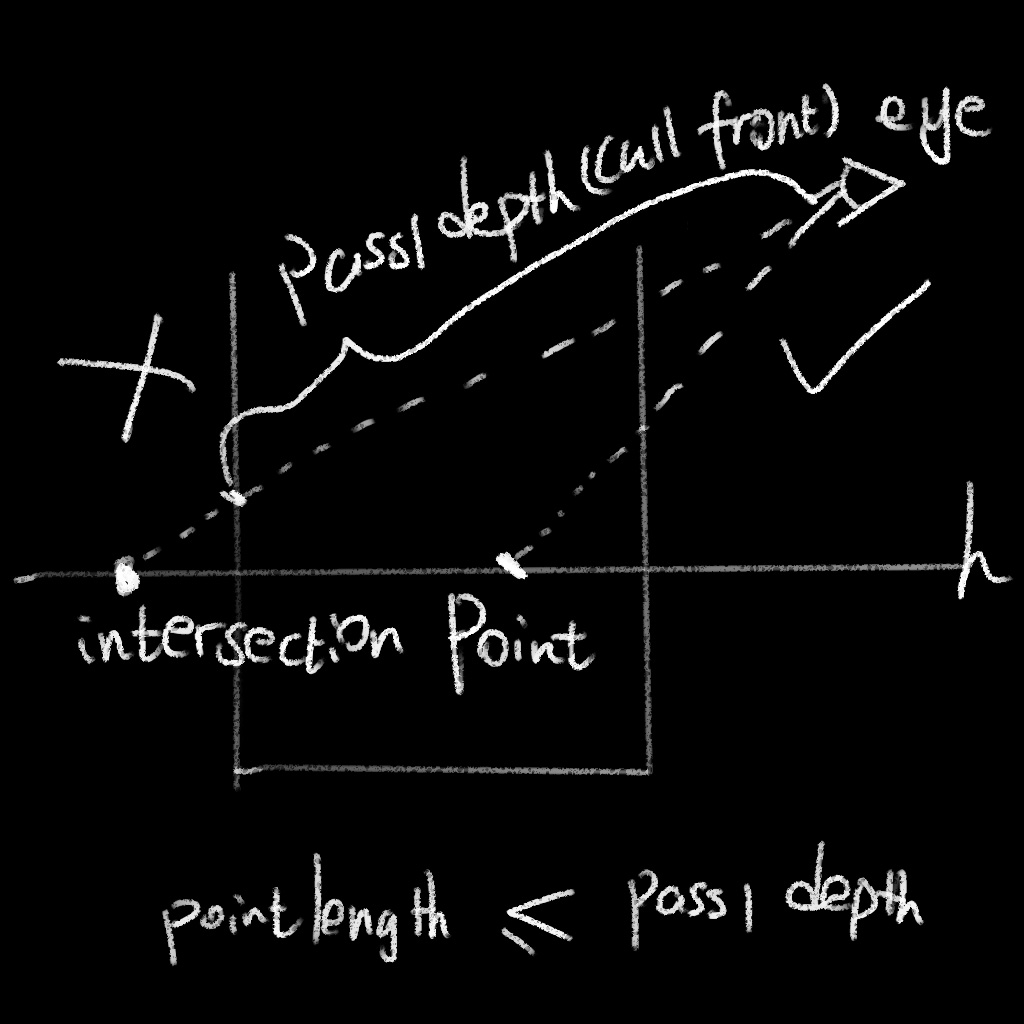 eye
pass1 depth (cull front)
h
intersection Point
point length ≤ pass1 depth